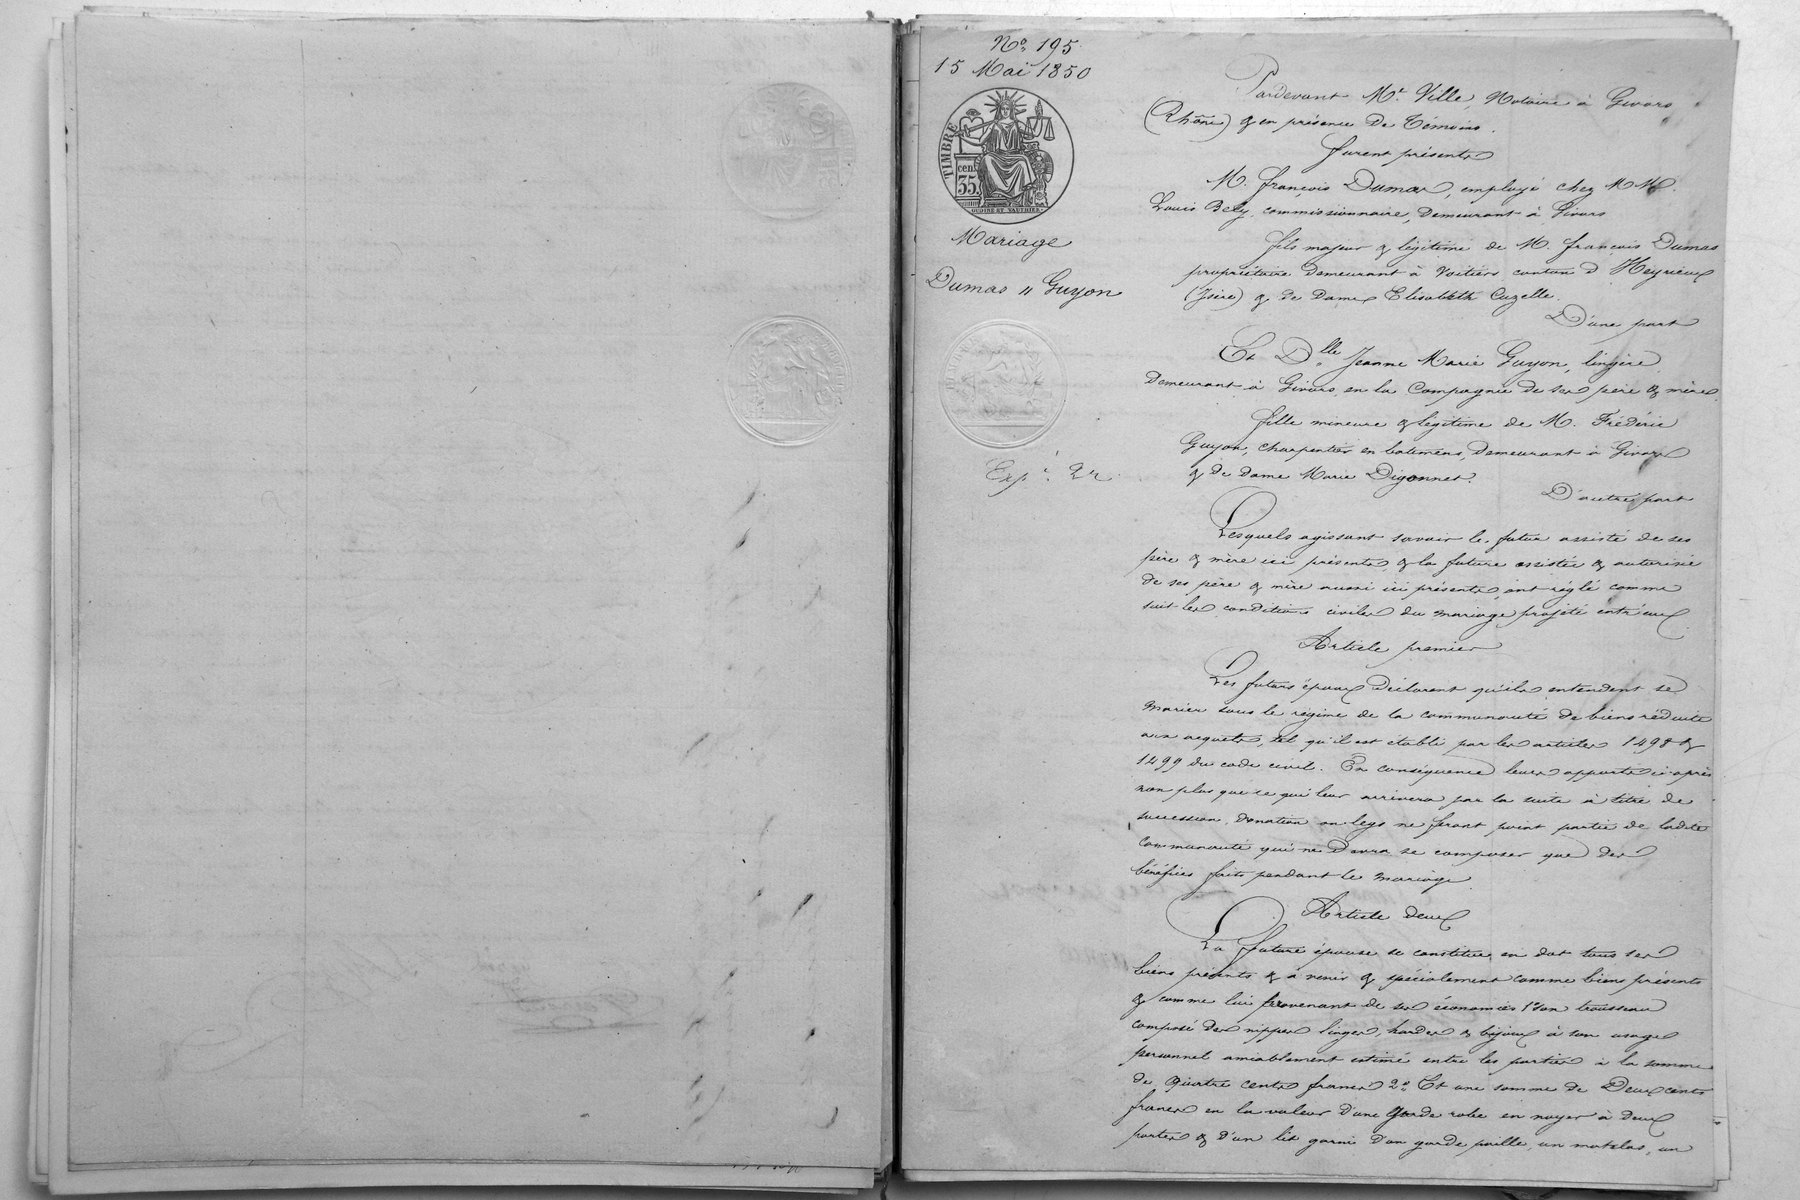 No. 195
15 Mai 1850
TIMBRE
cen.
35.
OUDINE ET VAUTHIER.
Mariage
Dumas " Guyon
Pardevant Me. Ville, Notaire à Givors
(Rhône) & en présence de Témoins.
furent présents
M. françois Dumas, employé chez MM.
Louis Bely, commissionnaire, demeurant à Givors
fils majeur & légitime de M. françois Dumas
propriétaire demeurant à canton d'Heyrieux
(Isère) & de Dame Elisabeth Cuzelle.
D'une part
Et Dlle Jeanne Marie Guyon, lingère
Demeurant à Givors, en la Compagnie de ses père & mère
fille mineure & légitime de M. Frédéric
Guyon, charpentier en batimens, Demeurant à Givors
& de Dame Marie Digonnet.
D'autre part
Lesquels agissant savoir le futur assisté de ses
père & mère ici présents & la future assistée & autorisée
de ses père & mère aussi ici présents, ont réglé comme
suit les conditions civiles du mariage projeté entr'eux
Article premier
Les futurs époux Déclarent qu'ils entendent se
marier sous le régime de la communauté de biens réduite
aux acquets, tel qu'il est établi par les articles 1498 &
1499 du code civil. En conséquence leurs apports ci-après
non plus que ce qui leur arrivera par la suite à titre de
succession, donation ou legs ne feront point partie de ladite
communauté qui ne Devra se composer que des
bénéfices faits pendant le mariage.
Article deux
La future épouse se constitue en dot tous ses
biens présents & à venir & spécialement comme biens présents
& comme lui provenant de ses économies 1o son trousseau
composé des nippes linges, hardes & bijoux à son usage
personnel amiablement estimé entre les parties à la somme
de quatre cents francs 2o Et une somme de Deux cents
francs en la valeur d'une garde robe en noyer à deux
portes & d'un lit garni d'un garde paille, un matelas, un